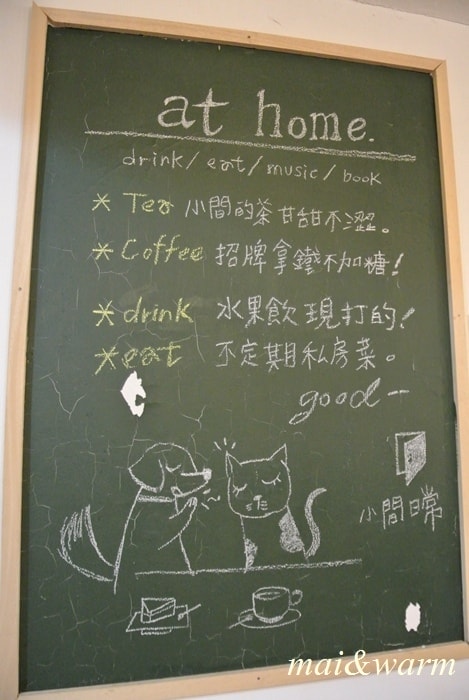 at home.
drink/eat/music/book
* Tea 小間的茶 甘甜不澀。
* Coffee 招牌拿鐵不加糖!
* drink 水果飲 現打的!
* eat 不定期私房菜。
good—
小間日常
mai&warm